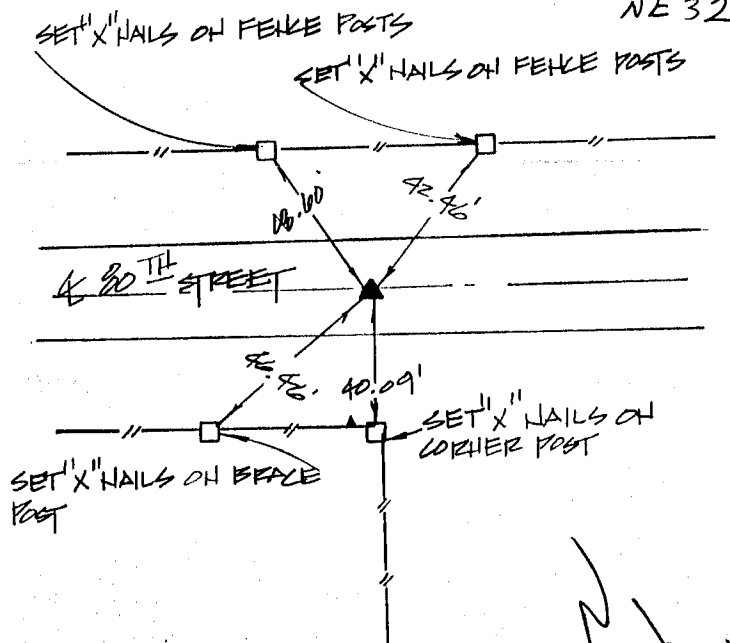 NE 32
SET "X" NAILS ON FENCE POSTS
SET "X" NAILS ON FENCE POSTS
42.46'
℄ 80TH STREET
40.09'
SET "X" NAILS ON
CORNER POST
SET "X" NAILS ON BRACE
POST